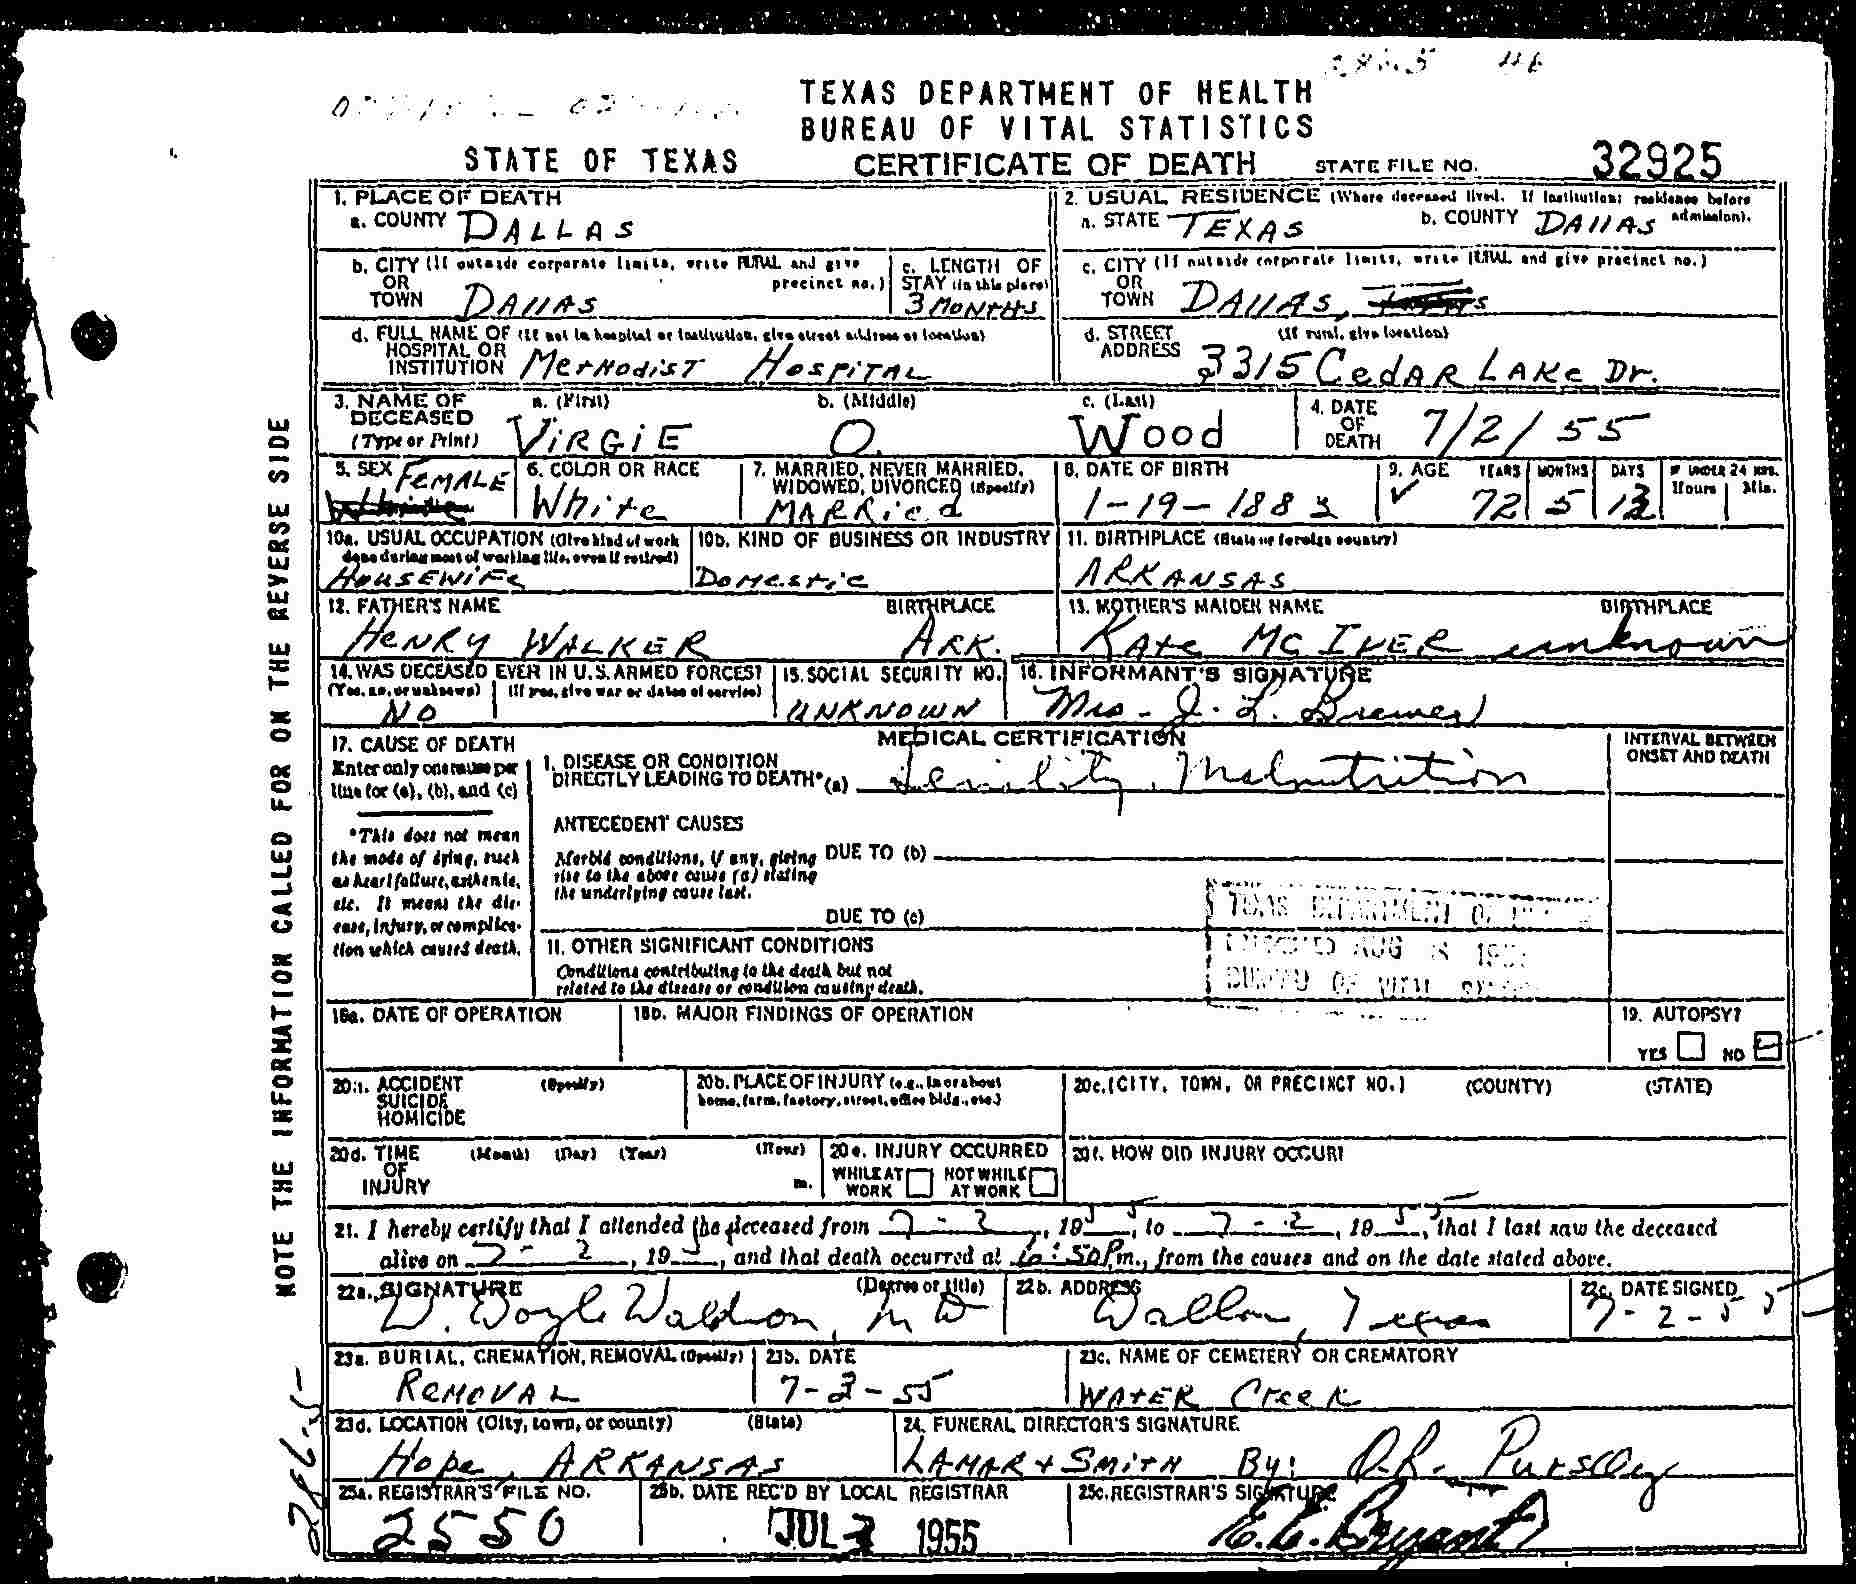 TEXAS DEPARTMENT OF HEALTH
BUREAU OF VITAL STATISTICS
STATE OF TEXAS CERTIFICATE OF DEATH STATE FILE NO. 32925
1. PLACE OF DEATH
a. COUNTY DALLAS
2. USUAL RESIDENCE (Where deceased lived. If institution: residence before admission).
a. STATE TEXAS b. COUNTY DAllAS
b. CITY (If outside corporate limits, write RURAL and give precinct no.)
OR
TOWN DAllAS
c. LENGTH OF
STAY (in this place)
3 MONTHS
c. CITY (If outside corporate limits, write RURAL and give precinct no.)
OR
TOWN DAllAS,
d. FULL NAME OF (If not in hospital or institution, give street address or location)
HOSPITAL OR
INSTITUTION METHODIST HOSPITAL
d. STREET (If rural, give location)
ADDRESS 3315 CedAR LAKe Dr.
3. NAME OF
DECEASED
(Type or Print)
a. (First) b. (Middle) c. (Last)
VIRGIE O. Wood
4. DATE
OF
DEATH 7/2/55
5. SEX FEMALE
6. COLOR OR RACE
White
7. MARRIED, NEVER MARRIED,
WIDOWED, DIVORCED (Specify)
MARRied
8. DATE OF BIRTH
1-19-1883
9. AGE YEARS MONTHS DAYS IF UNDER 24 HRS.
Hours Min.
72 5 13
10a. USUAL OCCUPATION (Give kind of work
done during most of working life, even if retired)
HOUSEWIFE
10b. KIND OF BUSINESS OR INDUSTRY
Domestic
11. BIRTHPLACE (State or foreign country)
ARKANSAS
12. FATHER'S NAME BIRTHPLACE
HENRY WALKER ARK.
13. MOTHER'S MAIDEN NAME BIRTHPLACE
KATE MCIVER unknown
14. WAS DECEASED EVER IN U.S. ARMED FORCES?
(Yes, no, or unknown) (If yes, give war or dates of service)
NO
15. SOCIAL SECURITY NO.
UNKNOWN
16. INFORMANT'S SIGNATURE
Mrs. J. L. Brewer
17. CAUSE OF DEATH
Enter only one cause per
line for (a), (b), and (c)
*This does not mean
the mode of dying, such
as heart failure, asthenia,
etc. It means the dis-
ease, injury, or complica-
tion which caused death.
MEDICAL CERTIFICATION
INTERVAL BETWEEN
ONSET AND DEATH
I. DISEASE OR CONDITION
DIRECTLY LEADING TO DEATH* (a) Senility, Malnutrition
ANTECEDENT CAUSES
Morbid conditions, if any, giving
rise to the above cause (a) stating
the underlying cause last.
DUE TO (b)
DUE TO (c)
TEXAS DEPARTMENT OF
AUG 8
BUREAU OF VITAL
II. OTHER SIGNIFICANT CONDITIONS
Conditions contributing to the death but not
related to the disease or condition causing death.
18a. DATE OF OPERATION
18b. MAJOR FINDINGS OF OPERATION
19. AUTOPSY?
YES NO
20a. ACCIDENT (Specify)
SUICIDE
HOMICIDE
20b. PLACE OF INJURY (e.g., in or about
home, farm, factory, street, office bldg., etc.)
20c. (CITY, TOWN, OR PRECINCT NO.) (COUNTY) (STATE)
20d. TIME (Month) (Day) (Year) (Hour)
OF
INJURY m.
20e. INJURY OCCURRED
WHILE AT WORK NOT WHILE AT WORK
20f. HOW DID INJURY OCCUR?
21. I hereby certify that I attended the deceased from 7-2, 1955, to 7-2, 1955, that I last saw the deceased
alive on 7-2, 195, and that death occurred at 6:50 P.m., from the causes and on the date stated above.
22a. SIGNATURE (Degree or title)
W. Doyle Waldron, MD
22b. ADDRESS
Dallas, Texas
22c. DATE SIGNED
7-2-55
23a. BURIAL, CREMATION, REMOVAL (Specify)
REMOVAL
23b. DATE
7-3-55
23c. NAME OF CEMETERY OR CREMATORY
WATER Creek
23d. LOCATION (City, town, or county) (State)
Hope, ARKANSAS
24. FUNERAL DIRECTOR'S SIGNATURE
LAMAR & SMITH By: O.R. Pursley
25a. REGISTRAR'S FILE NO.
2550
25b. DATE REC'D BY LOCAL REGISTRAR
JUL 3 1955
25c. REGISTRAR'S SIGNATURE
E.C. Bryant
NOTE THE INFORMATION CALLED FOR ON THE REVERSE SIDE